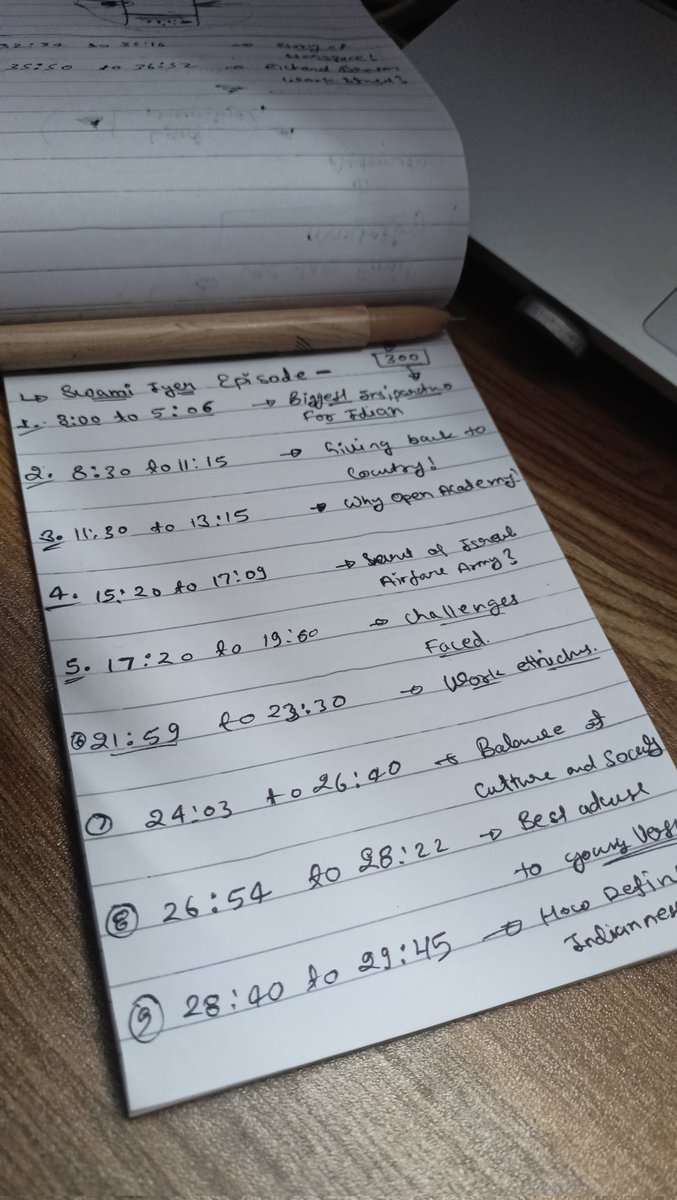 to 35:16
25:50 to 26:52 → Richard
work
↳ Swami Iyer Episode -
300
1. 3:00 to 5:06 → Biggest
For Idian
2. 8:30 to 11:15 → Giving back to
Country!
3. 11:30 to 13:15 → Why Open Academy?
4. 15:20 to 17:09 → of Isreal
Airfare Army?
5. 17:20 to 19:60 → Challenges
Faced.
⑥ 21:59 to 23:30 → Work ethicks.
⑦ 24:03 to 26:40 → Balance of
Culture and Socety
⑧ 26:54 to 28:22 → Best advise
to young
⑨ 28:40 to 29:45 → How Defin
Indiannes